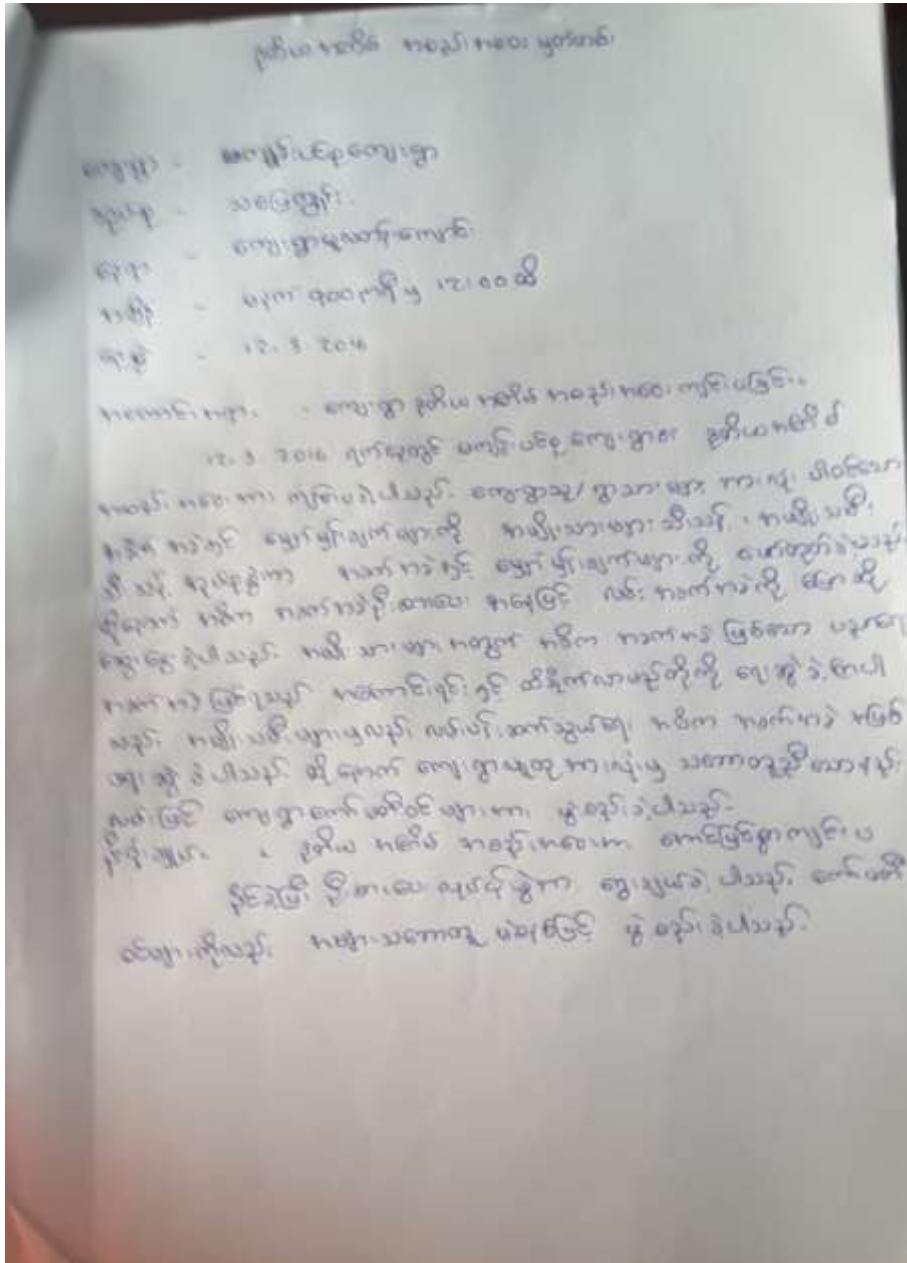 ဒုတိယ အကြိမ် အစည်းအဝေး မှတ်တမ်း
ကျေးရွာ -
အုပ်စု - သမြေကျွန်း
နေရာ - ကျေးရွာမူလတန်းကျောင်း
အချိန် - မနက် မှ 12:00 ထိ
ရက်စွဲ - 12. 3. 2016
အကြောင်းအရာ - ကျေးရွာ ဒုတိယ အကြိမ် အစည်းအဝေး ကျင်းပခြင်း။
12. 3. 2016 ရက်နေ့တွင် ကျေးရွာ၏ ဒုတိယ အကြိမ်
အစည်းအဝေးအား ကျင်းပခဲ့ပါသည်။ ကျေးရွာသူ/ရွာသားများ အားလုံး ပါဝင်သော
အဓိက အခက်အခဲနှင့် မျှော်မှန်းချက်များကို အမျိုးသားများ သီးသန့်၊ အမျိုးသမီး
သီးသန့် အုပ်စုခွဲကာ အခက်အခဲနှင့် မျှော်မှန်းချက်များကို ဖော်ထုတ်ခဲ့ပါသည်။
ထို့နောက် အဓိက အခက်အခဲ ဦးစားပေး အနေဖြင့် လမ်း အခက်အခဲကို
ဆွေးနွေးခဲ့ပါသည်။ အမျိုးသားများ အတွက် အဓိက အခက်အခဲ ဖြစ်သော
အခက်အခဲ ဖြစ်ရသည့် အကြောင်းရင်းနှင့် ထိခိုက်လာမည်တို့ကို ရေးဆွဲခဲ့ကြပါ
သည်။ အမျိုးသမီးများမှလည်း လမ်းပန်းဆက်သွယ်ရေး အဓိက အခက်အခဲ အဖြစ်
ရေးဆွဲခဲ့ပါသည်။ ထို့နောက် ကျေးရွာလူထု အားလုံးမှ သဘောတူညီသော နည်း
လမ်းဖြင့် ကျေးရွာကော်မတီဝင်များအား ဖွဲ့စည်းခဲ့ပါသည်။
ဒုတိယ အကြိမ် အစည်းအဝေးအား အောင်မြင်စွာကျင်းပ
နိုင်ခဲ့ပြီး ဦးစားပေး လုပ်ငန်း ရွေးချယ်ခဲ့ပါသည်။ ကော်မတီ
ဝင်များကိုလည်း အများသဘောတူ ဖြင့် ဖွဲ့စည်းခဲ့ပါသည်။